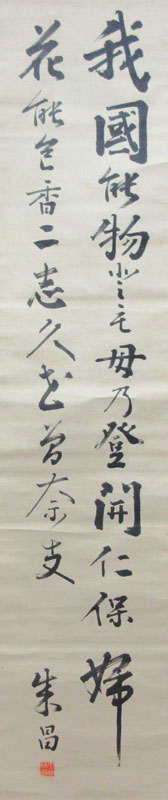 我國能物毋乃登開仁保婦
花能色香二志久曽奈支
朱昌